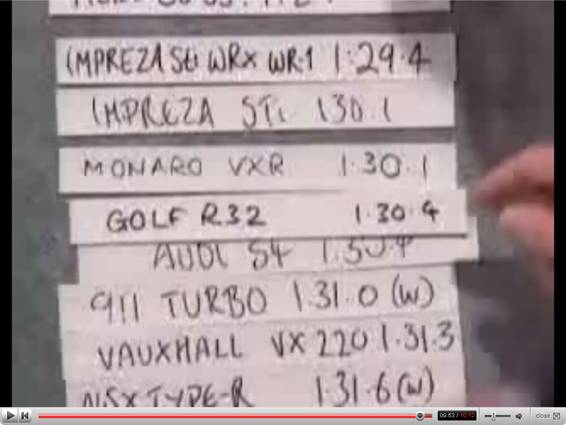 IMPREZA STi WRX WR1 1·29·4
IMPREZA STi 1 30.1
MONARO VXR 1·30.1
GOLF R32 1.30.4
AUDI S4 1.30.4
911 TURBO 1.31.0 (W)
VAUXHALL VX 220 1.31.3
NSX TYPE-R 1:31.6 (W)
09:53 / 10:12
close